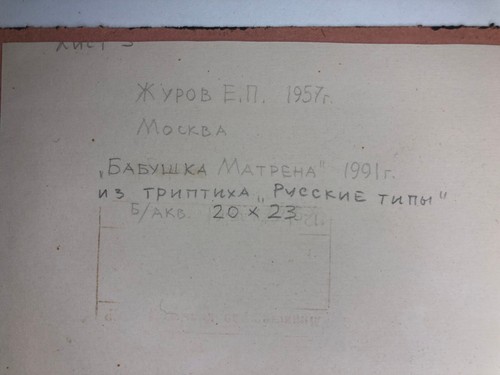 Лист 3
Журов Е.П. 1957г.
Москва
„Бабушка Матрена" 1991г.
из триптиха „Русские типы"
Б/акв. 20 х 23